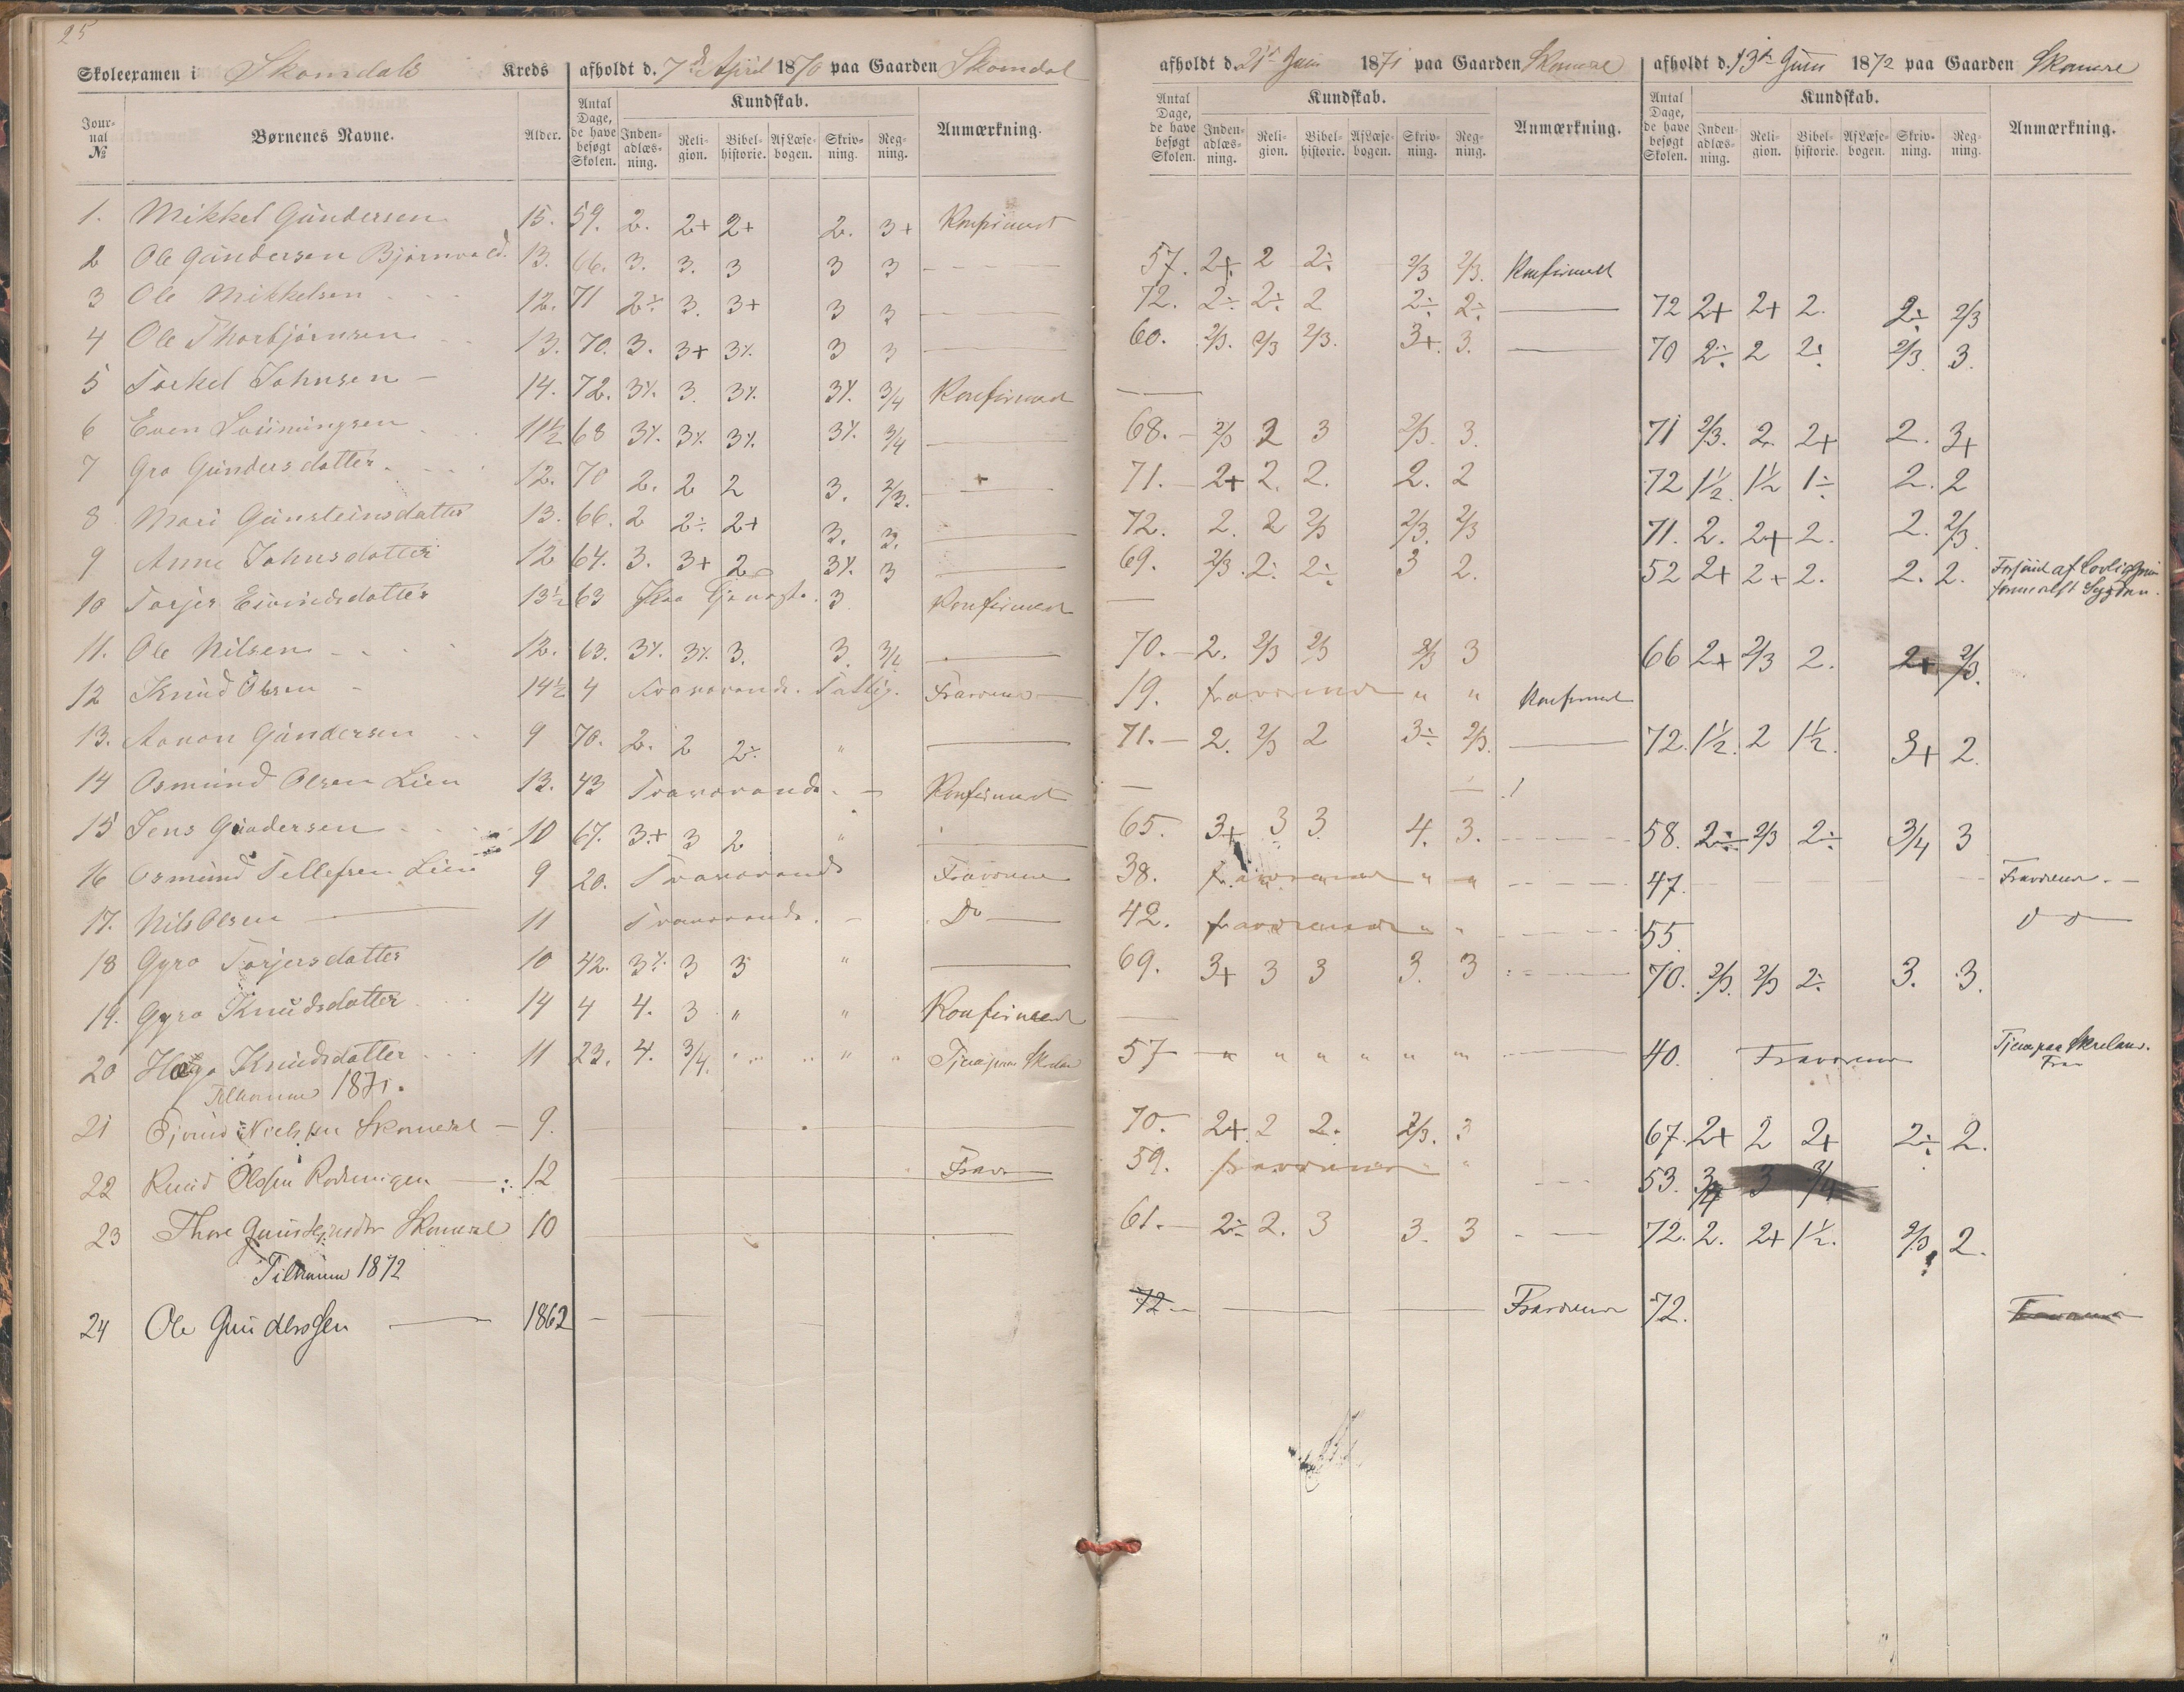 25
Skoleexamen i Skomdals Kreds afholdt d. 7de April 1870 paa Gaarden Skomdal
Journal № Børnenes Navne. Alder. Antal Dage, de have besøgt Skolen. Kundskab. Indenadlæsning. Religion. Bibelhistorie. Af Læsebogen. Skrivning. Regning. Anmærkning.
1. Mikkel Gündersen 15. 59. 2. 2+ 2+ 2. 3+ Konfirmert
2 Ole Gündersen 13. 66. 3. 3. 3 3 3
3 Ole Mikkelsen 12. 71 2÷ 3. 3+ 3 3
4 Ole Thorbjörnsen 13. 70. 3. 3+ 3% 3 3
5 Torkel Johnsen 14. 72. 3% 3. 3% 3% 3/4 Konfirmert
6 Even 11½ 68 3% 3% 3% 3% 3/4
7 Gro Gündersdatter 12. 70 2. 2 2 3. 2/3.
8 Mari Günsteinsdatter 13. 66. 2 2÷ 2+ 3. 3.
9 Anne Johnsdatter 12 64. 3. 3+ 2 3% 3
10 Torjer Eivindsdatter 13½ 63 3 Konfirmert
11. Ole Nilsen 12. 63. 3% 3% 3. 3. 3/4
12 Knüd Olsen 14½ 4 Fraværende.
13. Aanon Gündersen 9 70. 2. 2 2÷ "
14 Osmünd Olsen Lien 13. 43 Fraværende. Konfirmert
15 Jens Gündersen 10 67. 3+ 3 2 "
16 Osmünd Tellefsen Lien 9 20. Fraværende
17. Nils Olsen 11 Fraværende. Do
18 Gyro Torjersdatter 10 42. 3% 3 3 "
19. Gyro Knüdsdatter 14 4 4. 3 " " Konfirmert
20 Knüdsdatter 11 23. 4. 3/4. " " "
1871.
21 Nielsen Skomdal 9.
22 Olsen 12 Frav.
23 Thore Skomdal 10
1872
24 Ole Gunderssen 1862
afholdt d. 21de Juni 1871 paa Gaarden Skomdal
Antal Dage, de have besøgt Skolen. Kundskab. Indenadlæsning. Religion. Bibelhistorie. Af Læsebogen. Skrivning. Regning. Anmærkning.
57. 2+ 2 2÷ 2/3 2/3. Konfirmert
72. 2÷ 2÷ 2 2÷ 2÷
60. 2/3. 2/3 2/3. 3+ 3.
68. 2/3 2 3 2/3. 3.
71. 2+ 2. 2. 2. 2
72. 2. 2 2/3 2/3. 2/3
69. 2/3. 2÷ 2÷ 3 2.
70. 2. 2/3 2/3 2/3 3
19. fraværende " " Konfirmert
71. 2. 2/3 2 3÷ 2/3.
65. 3+ 3 3 4. 3.
38. fraværende " "
42. fraværende " "
69. 3+ 3 3 3. 3
57 " " " " " "
70. 2+ 2 2. 2/3. 3
59. fraværende "
61. 2÷ 2. 3 3. 3
72 Fraværende
afholdt d. 13de Juni 1872 paa Gaarden Skomdal
Antal Dage, de have besøgt Skolen. Kundskab. Indenadlæsning. Religion. Bibelhistorie. Af Læsebogen. Skrivning. Regning. Anmærkning.
72 2+ 2+ 2. 2÷ 2/3
70 2÷ 2 2÷ 2/3. 3.
71 2/3. 2. 2+ 2. 3+
72 1½ 1½ 1÷ 2. 2
71. 2. 2+ 2. 2. 2/3.
52 2+ 2+ 2. 2. 2.
66 2+ 2/3 2. 2+ 2/3.
72. 1½. 2 1½. 3+ 2.
58. 2÷ 2/3 2÷ 3/4 3
47. Fraværende
55.
70. 2/3. 2/3 2÷ 3. 3.
40. Fraværende
67. 2+ 2 2+ 2÷ 2.
53. 3/4 3 3/4
72. 2. 2+ 1½. 2/3. 2.
72.